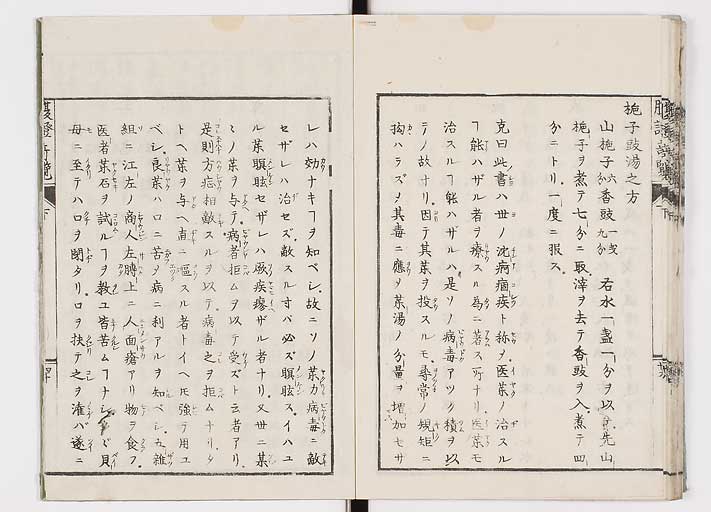 梔子豉湯之方
山梔子六分香豉一戔九分 右水一盞一分ヲ以先山
梔子ヲ煮テ七分ニ取滓ヲ去テ香豉ヲ入煮テ四
分ニトリ一度ニ服ス
克曰此書ハ世ノ沈病痼疾ト称ヲ医薬ノ治スル
ヿ能ハザル者ヲ療スル為ニ著ス所ナリ医薬モ
治スルヿ能ハザルハ是ソノ病毒アツク積ヲ以
テノ故ナリ因テ其薬ヲ投スルモ尋常ノ規矩ニ
拘ハラズメ其毒ニ應メ薬湯ノ分量ヲ増加セサ
レハ効ナキヿヲ知ベシ故ニソノ薬力病毒ニ敵
セザレハ治セズ敵スル寸バ必ズ瞑眩スイハユ
ル薬瞑眩セザレハ厥疾瘳ザル者ナリ又世ニ某
々ノ薬ヲ与テ病者拒ムヲ以テ受ズト云者アリ
是則方症相敵スルヲ以テ病毒之ヲ拒ムナリタ
トヘ薬ヲ与ヘ直ニ嘔スル者トイヘ𪜈強テ用ユ
ベシ良薬ハ口ニ苦ク病ニ利アルヲ知ベシ五雑
組ニ江左ノ商人左膊上ニ人面瘡アリ物ヲ食フ
医者薬石ヲ試ルヿヲ教ユ皆苦ムヿナシ貝
母ニ至テハ口ヲ閉タリ口ヲ扶テ之ヲ灌バ遂ニ
腹證奇覽 下